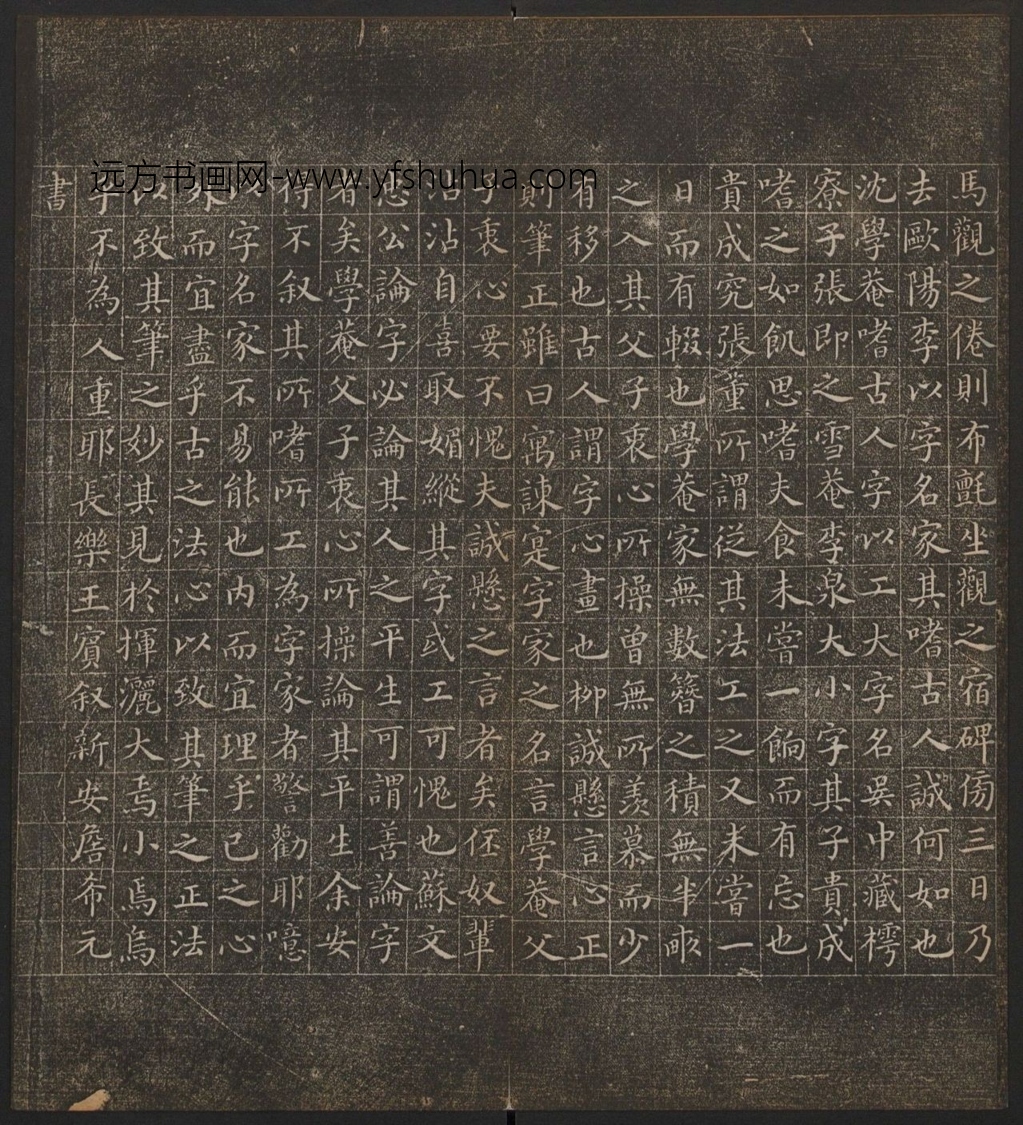 远方书画网-www.yfshuhua.com
馬觀之倦則布氈坐觀之宿碑傍三日乃
去歐陽李以字名家其嗜古人誠何如也
沈學菴嗜古人字以工大字名吳中藏樗
寮子張即之雪菴李泉大小字其子貴成
嗜之如飢思嗜夫食未嘗一餉而有忘也
貴成究張董所謂從其法工之又未嘗一
日而有輟也學菴家無數簪之積無半畝
之入其父子衷心所操曾無所羡慕而少
有移也古人謂字心畫也柳誠懸言心正
則筆正雖曰寓諫寔字家之名言學菴父
子衷心要不愧夫誠懸之言者矣伾奴輩
沾沾自喜取媚縱其字或工可愧也蘇文
忠公論字必論其人之平生可謂善論字
者矣學菴父子衷心所操論其平生余安
得不叙其所嗜所工為字家者警勸耶噫
以字名家不易能也內而宜理乎已之心
外而宜盡乎古之法心以致其筆之正法
以致其筆之妙其見於揮灑大焉小焉烏
乎不為人重耶長樂王賓叙新安詹希元
書